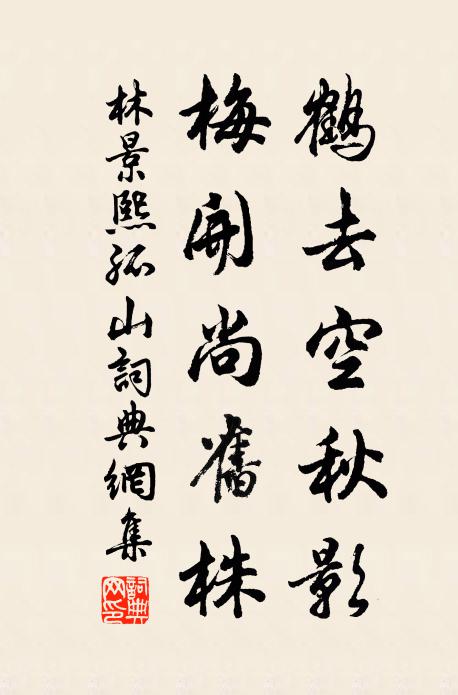 鶴去空秋影
梅開尚舊株
林景熙孤山詞典網集
詞典網印